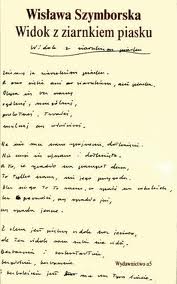 Wisława Szymborska
Widok z ziarnkiem piasku
Widok z ziarnkiem piasku
Zwiemy je ziarnkiem piasku.
A ono siebie ani ziarnkiem, ani piasku.
Obywa się bez nazwy
ogólnej, szczególnej,
przelotnej, trwałej,
mylnej czy właściwej.
Na nic mu nasze spojrzenie, dotknięcie.
Nie czuje się ujrzane i dotknięte.
A to, że spadło na parapet okna,
to tylko nasza, nie jego przygoda.
Dla niego to to samo, co spaść na cokolwiek
bez pewności, czy spadło już,
czy spada jeszcze.
Wydawnictwo a5
Z okna jest piękny widok na jezioro,
ale ten widok sam siebie nie widzi.
Bezbarwnie i bezkształtnie,
bezgłośnie, bezwonnie
i bezboleśnie jest mu na tym świecie.